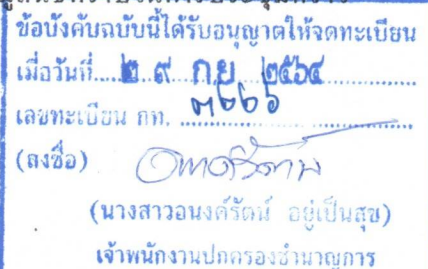 ข้อบังคับฉบับนี้ได้รับอนุญาตให้จดทะเบียน
เมื่อวันที่ ๒ ๙ ก.ย. ๒๕๖๔
เลขทะเบียน กท. ๓๖๖๖
(ลงชื่อ)
(นางสาวอนงค์รัตน์ อยู่เป็นสุข)
เจ้าพนักงานปกครองชำนาญการ